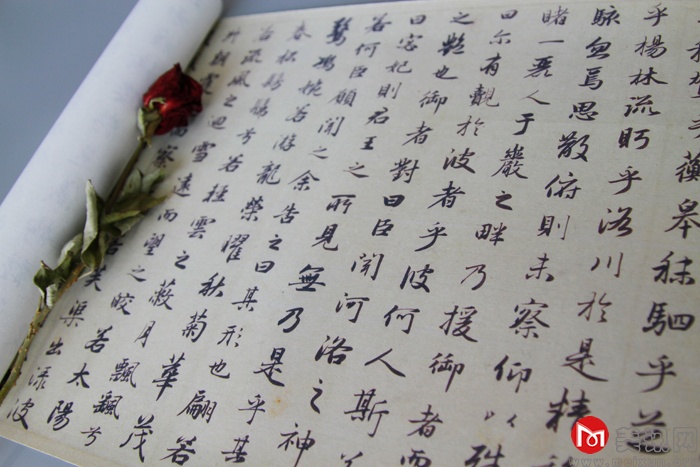 蘅皋秣駟乎
乎楊林流眄乎洛川於是精
駭忽焉思散俯則未察仰以殊
睹一麗人于巖之畔乃援御者而
曰尔有覿於波者乎波何人斯
之艷也御者對曰臣聞河洛之神
曰宓妃則君王之所見無乃是乎其
若何臣願聞之余告之曰其形也翩若
驚鴻婉若游龍榮曜秋菊華茂
春松髣髴兮若輕雲之蔽月飄颻兮
若流風之迴雪遠而望之皎若太陽
升朝霞察若芙渠出淥波